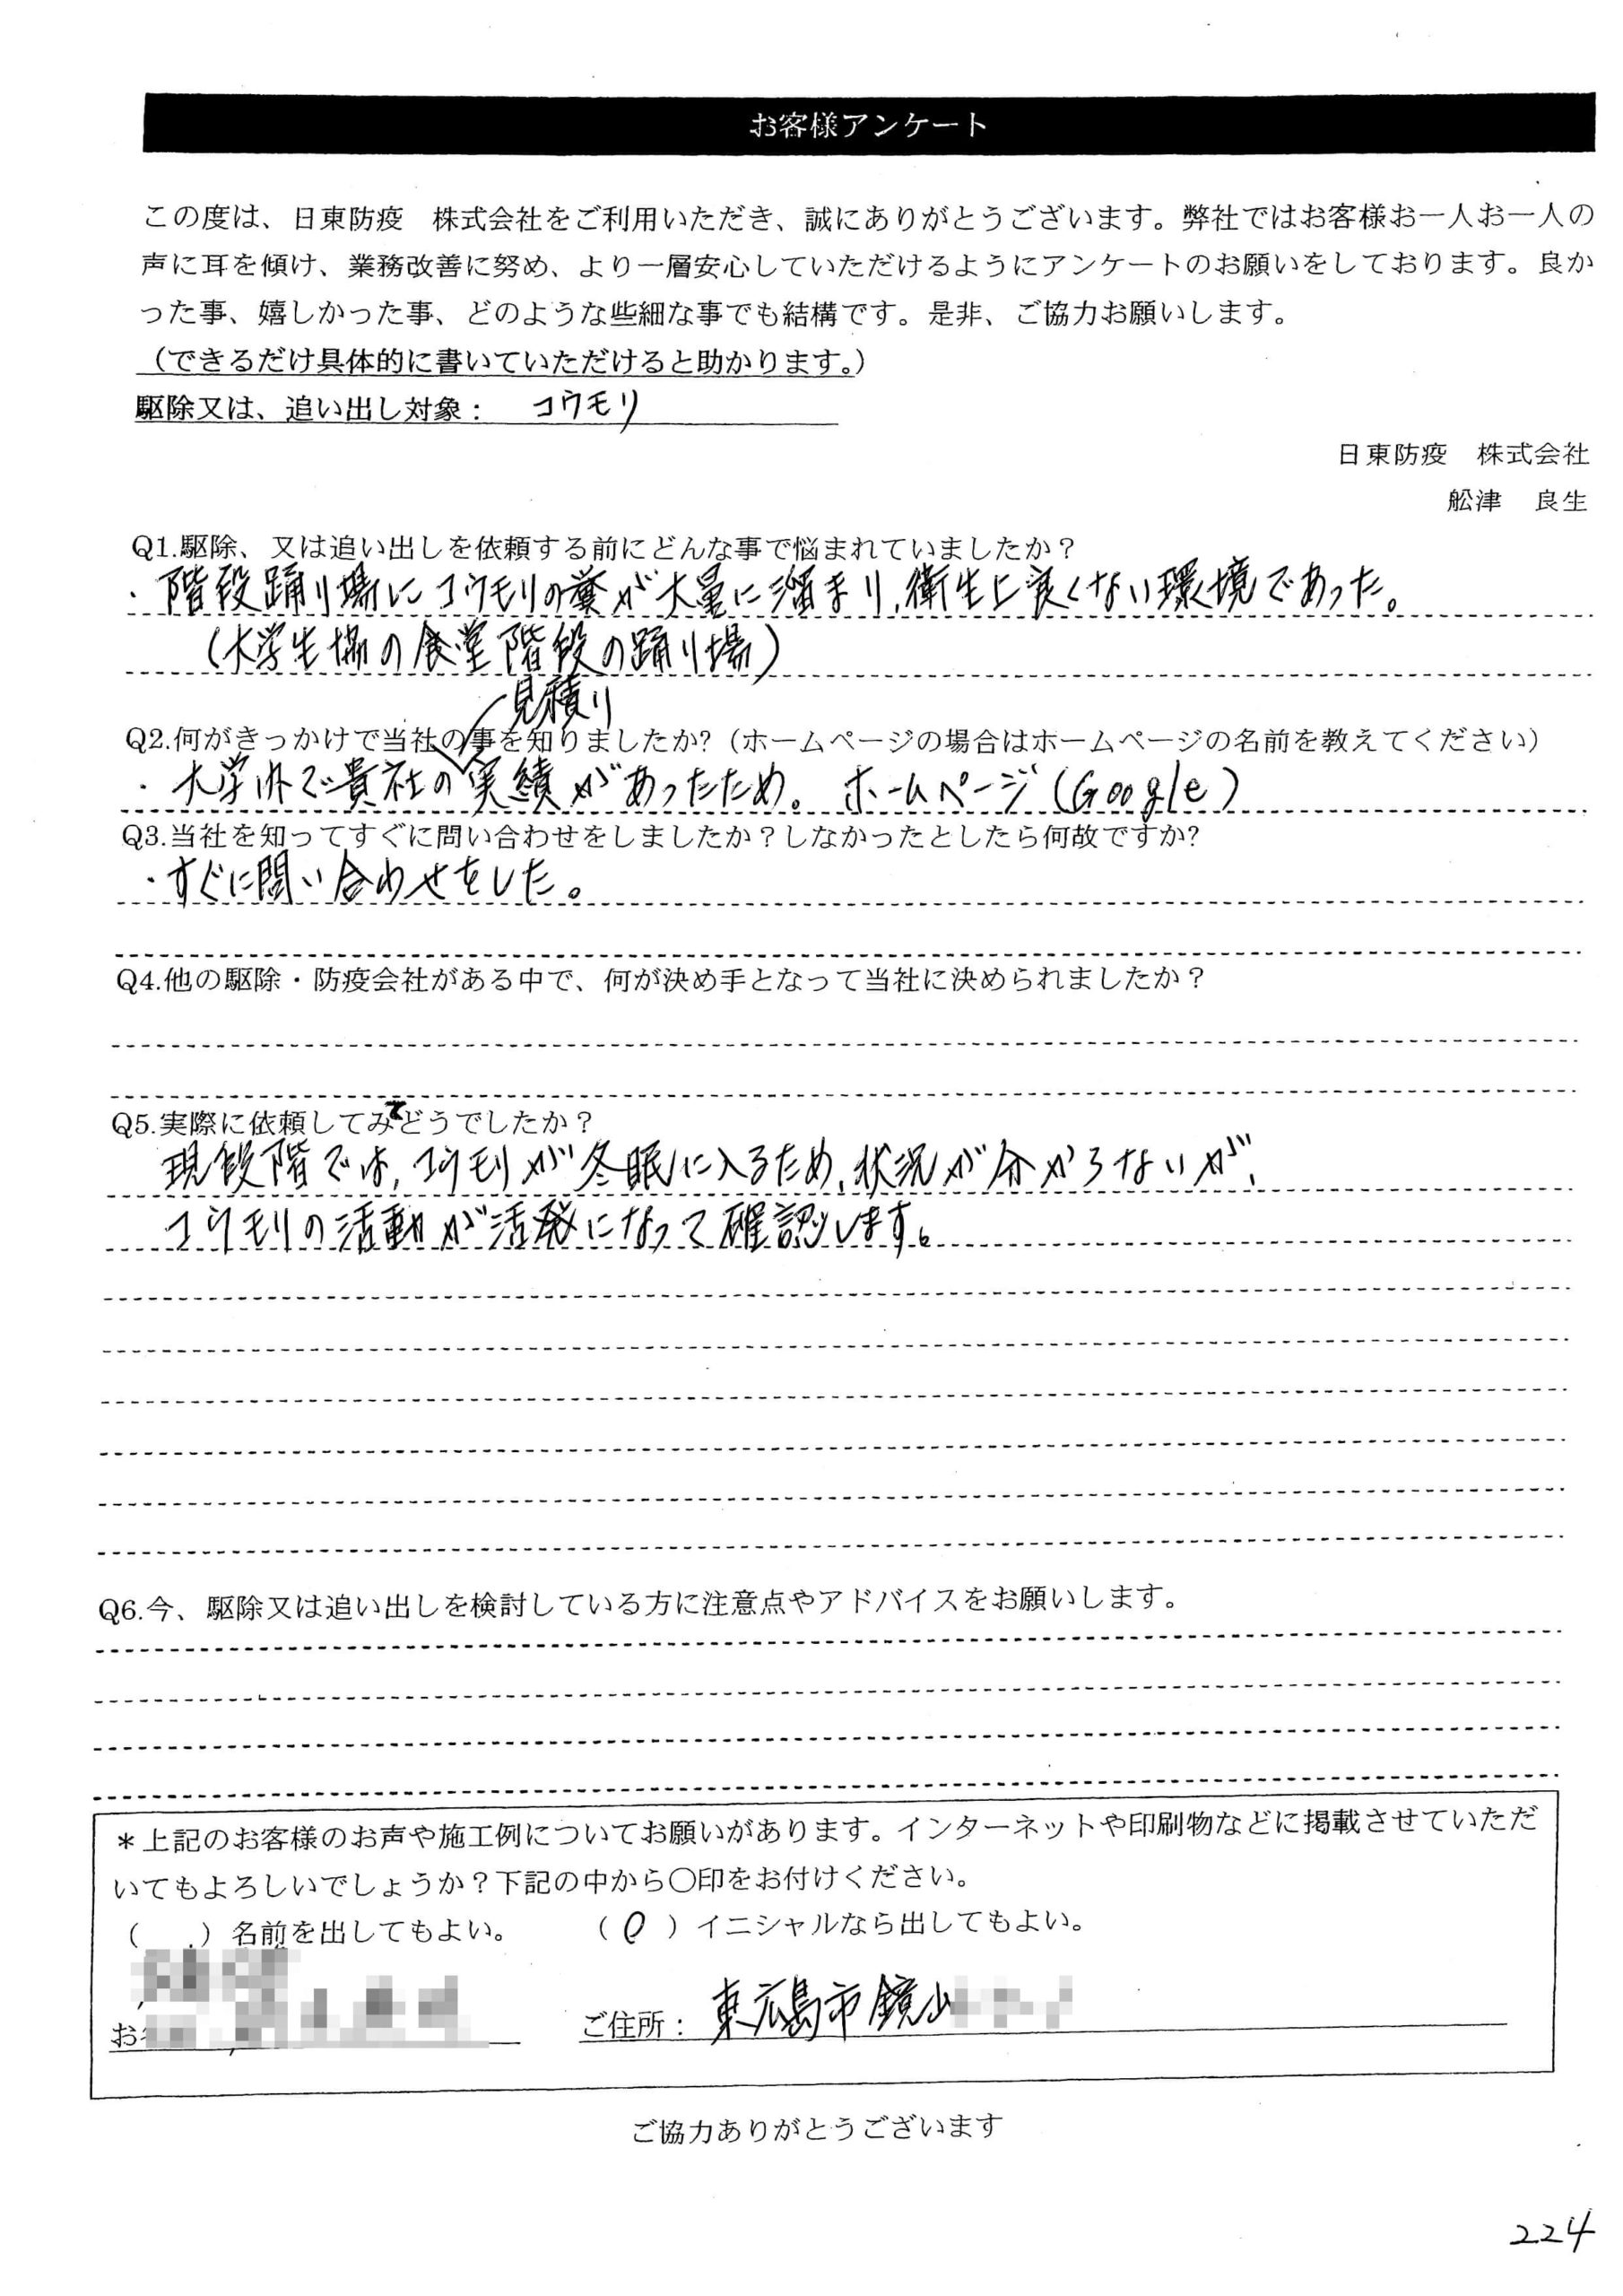 お客様アンケート
この度は、日東防疫　株式会社をご利用いただき、誠にありがとうございます。弊社ではお客様お一人お一人の
声に耳を傾け、業務改善に努め、より一層安心していただけるようにアンケートのお願いをしております。良か
った事、嬉しかった事、どのような些細な事でも結構です。是非、ご協力お願いします。
（できるだけ具体的に書いていただけると助かります。）
駆除又は、追い出し対象： コウモリ
日東防疫　株式会社
舩津　良生
Q1.駆除、又は追い出しを依頼する前にどんな事で悩まれていましたか？
・階段踊り場にコウモリの糞が大量に溜まり、衛生上良くない環境であった。
（大学生協の食堂階段の踊り場）
見積り
Q2.何がきっかけで当社の事を知りましたか?（ホームページの場合はホームページの名前を教えてください）
・大学内で貴社の実績があったため。 ホームページ（Google）
Q3.当社を知ってすぐに問い合わせをしましたか？しなかったとしたら何故ですか?
・すぐに問い合わせをした。
Q4.他の駆除・防疫会社がある中で、何が決め手となって当社に決められましたか？
Q5.実際に依頼してみてどうでしたか？
現段階では、コウモリが冬眠に入るため、状況が分からないが、
コウモリの活動が活発になって確認します。
Q6.今、駆除又は追い出しを検討している方に注意点やアドバイスをお願いします。
＊上記のお客様のお声や施工例についてお願いがあります。インターネットや印刷物などに掲載させていただ
いてもよろしいでしょうか？下記の中から〇印をお付けください。
（　　）名前を出してもよい。　　（ ○ ）イニシャルなら出してもよい。
お　ご住所： 東広島市鏡山
ご協力ありがとうございます
224